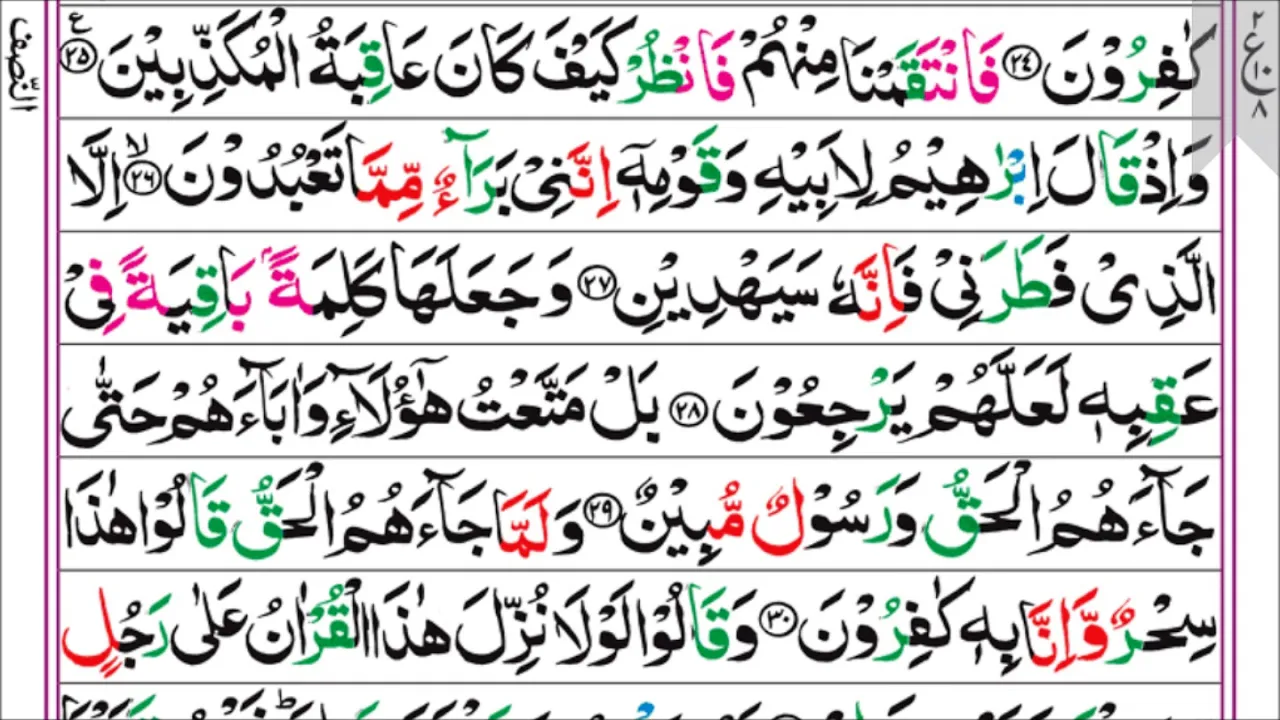 كٰفِرُوْنَ ﴿۲۴﴾ فَانْتَقَمْنَا مِنْهُمْ فَانْظُرْ كَيْفَ كَانَ عَاقِبَةُ الْمُكَذِّبِيْنَ ﴿۲۵﴾
وَاِذْ قَالَ اِبْرٰهِيْمُ لِاَبِيْهِ وَقَوْمِهٖٓ اِنَّنِيْ بَرَآءٌ مِّمَّا تَعْبُدُوْنَ ﴿۲۶﴾ۙ اِلَّا
الَّذِيْ فَطَرَنِيْ فَاِنَّهٗ سَيَهْدِيْنِ ﴿۲۷﴾ وَجَعَلَهَا كَلِمَةًۢ بَاقِيَةً فِيْ
عَقِبِهٖ لَعَلَّهُمْ يَرْجِعُوْنَ ﴿۲۸﴾ بَلْ مَتَّعْتُ هٰٓؤُلَآءِ وَاٰبَآءَهُمْ حَتّٰى
جَآءَهُمُ الْحَقُّ وَرَسُوْلٌ مُّبِيْنٌ ﴿۲۹﴾ وَلَمَّا جَآءَهُمُ الْحَقُّ قَالُوْا هٰذَا
سِحْرٌ وَّاِنَّا بِهٖ كٰفِرُوْنَ ﴿۳۰﴾ وَقَالُوْا لَوْلَا نُزِّلَ هٰذَا الْقُرْاٰنُ عَلٰى رَجُلٍ
النّصف
ع
۲
۱۰
۸